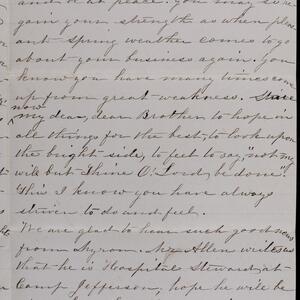 and at peace. you may so re
gain your strength as when pleas
ant spring weather comes to go
about your business again. you
know you have many times come
up from great weakness. Strive
now
my dear, dear Brother to hope in
all things for the best, to look upon
the bright side, to feel to say, "not my
will but Thine O' Lord, be done."
This I know you have always
striven to do and feel.
We are glad to hear such good news
from Myron. Mr Allen writes us
that he is Hospital Steward, at
Camp Jefferson, hope he will be